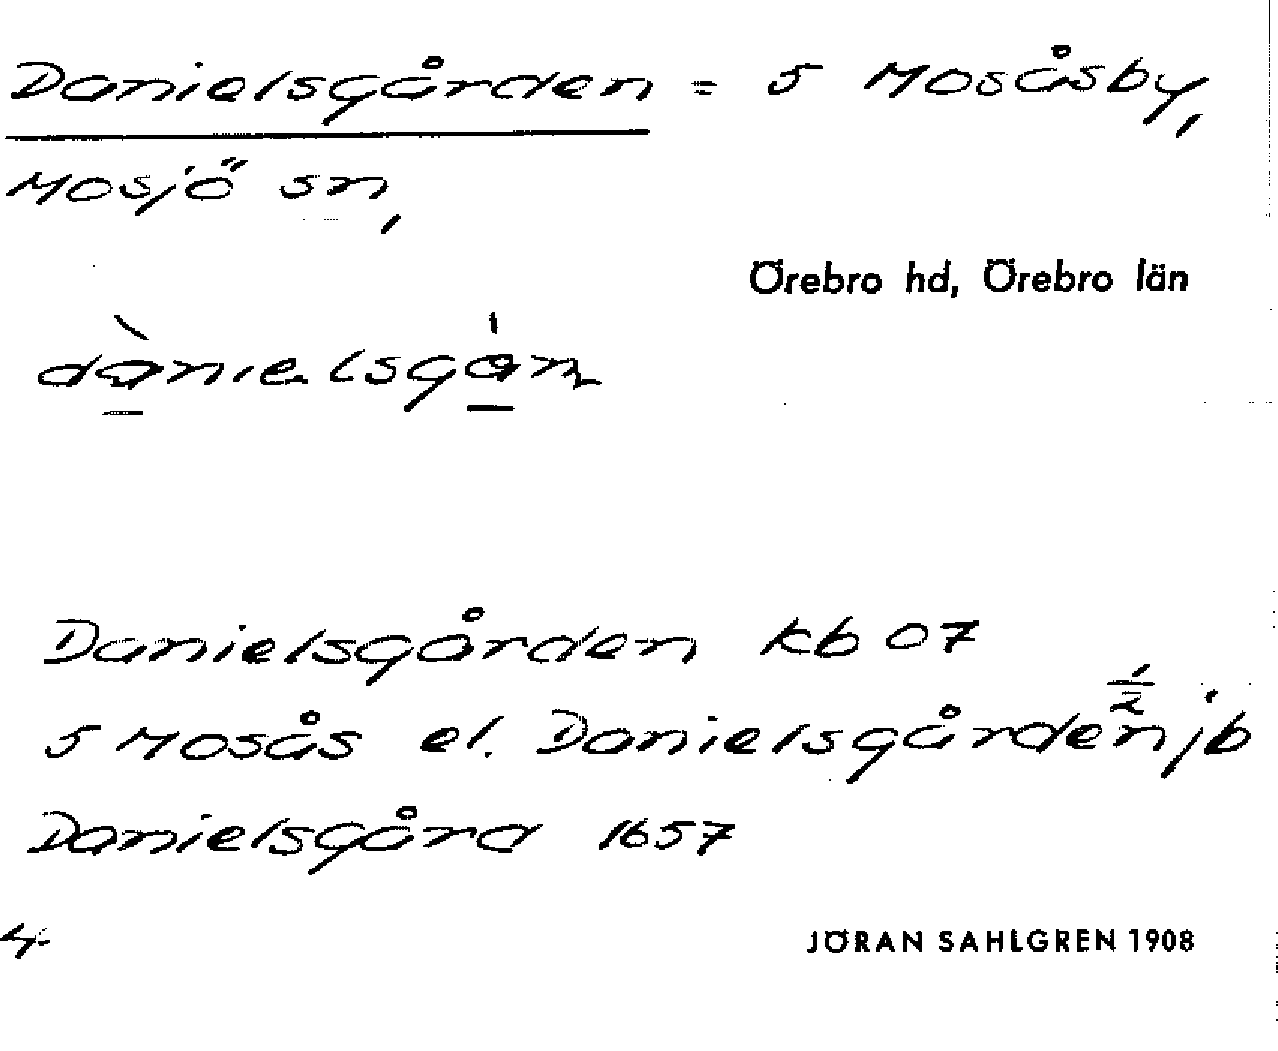 Danielsgården = 5 Mosåsby,
Mosjö sn,
Örebro hd, Örebro län
dànielsgån
Danielsgården kb 07
5 Mosås el. Danielsgården ½ jb
Danielsgård 1657
JÖRAN SAHLGREN 1908